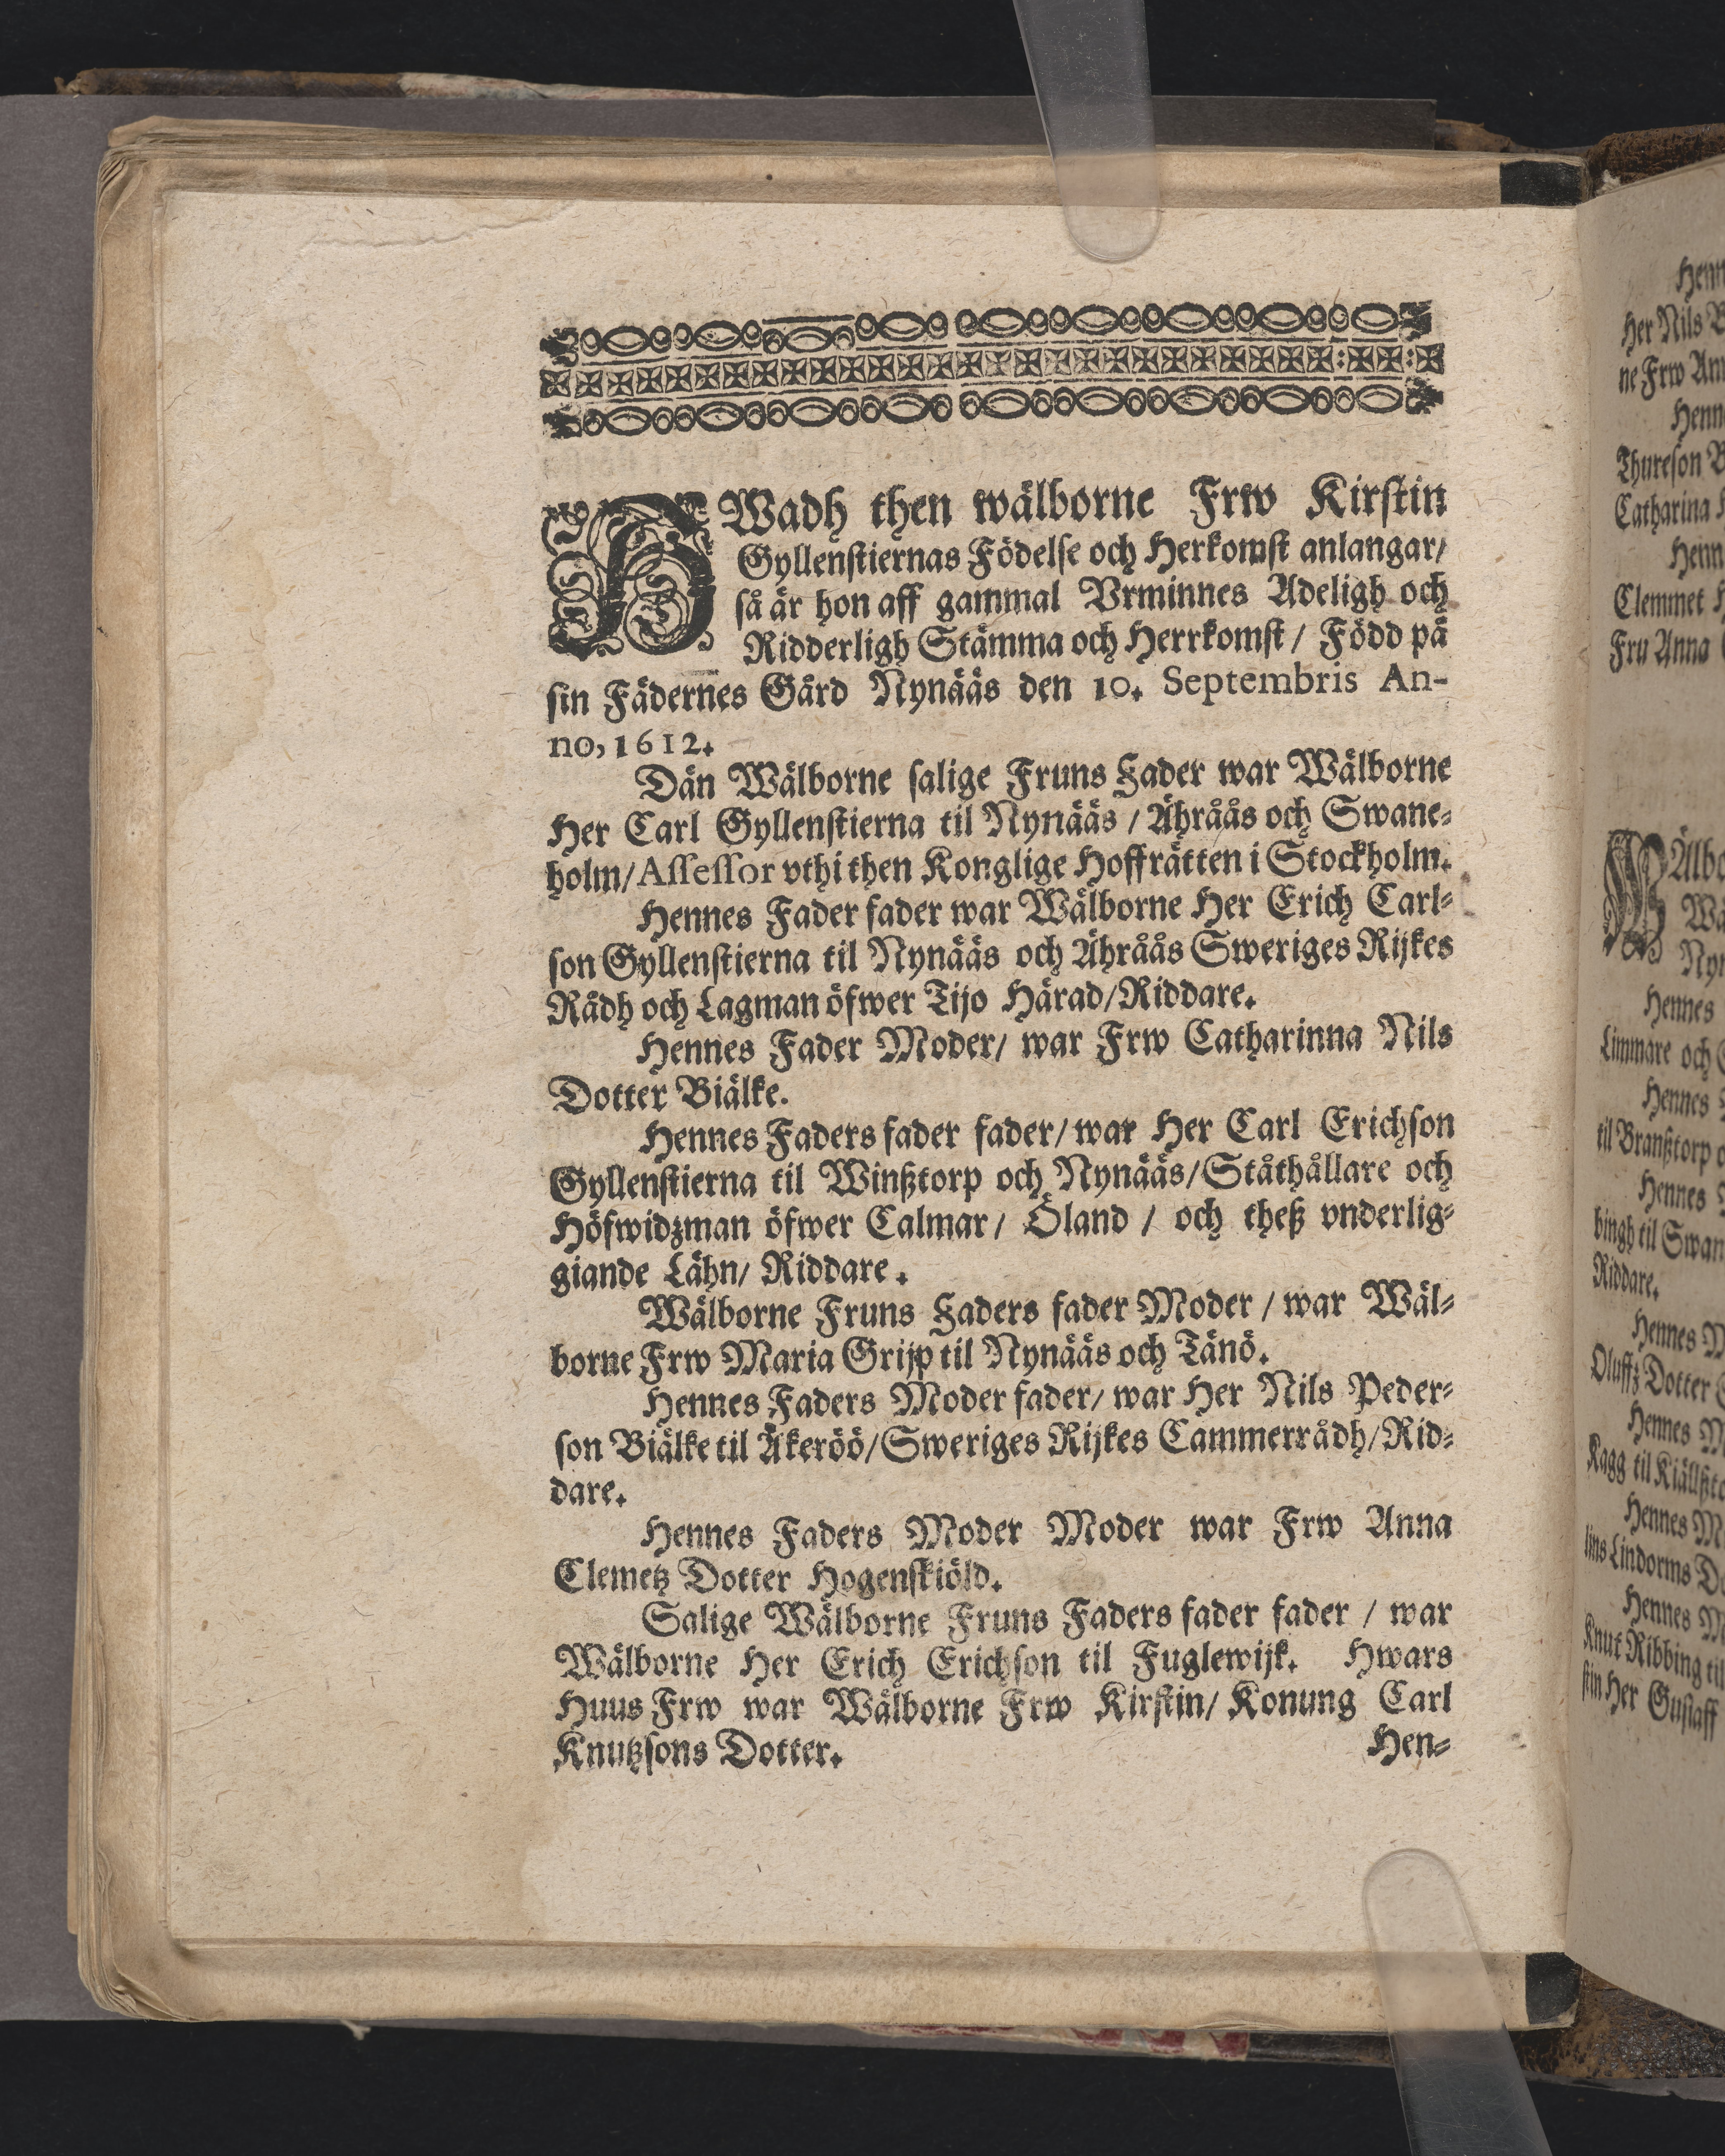 HWadh then wälborne Frw Kirstin
Gyllenstiernas Födelse och Herkomst anlangar/
så är hon aff gammal Vrminnes Adeligh och
Ridderligh Stämma och Herrkomst / Född på
sin Fädernes Gård Nynääs den 10. Septembris An-
no, 1612.
Dän Wälborne salige Fruns Fader war Wälborne
Her Carl Gyllenstierna til Nynääs / Ähråås och Swane-
holm/ Assessor vthi then Konglige Hoffrätten i Stockholm.
Hennes Fader fader war Wälborne Her Erich Carl-
son Gyllenstierna til Nynääs och Ähråås Sweriges Rijkes
Rådh och Lagman öfwer Tijo Härad/Riddare.
Hennes Fader Moder/ war Frw Catharinna Nils
Dotter Biälke.
Hennes Faders fader fader/ war Her Carl Erichson
Gyllenstierna til Winßtorp och Nynääs/Ståthållare och
Höfwidzman öfwer Calmar/ Öland / och theß vnderlig-
giande Lähn/ Riddare.
Wälborne Fruns Faders fader Moder / war Wäl-
borne Frw Maria Grijp til Nynääs och Tänö.
Hennes Faders Moder fader/ war Her Nils Peder-
son Biälke til Åkeröö/Sweriges Rijkes Cammerrådh/Rid-
dare.
Hennes Faders Moder Moder war Frw Anna
Clemetz Dotter Hogenskiöld.
Salige Wälborne Fruns Faders fader fader / war
Wälborne Her Erich Erichson til Fuglewijk. Hwars
Huus Frw war Wälborne Frw Kirstin/ Konung Carl
Knutzsons Dotter.
Hen-
Her Nils
ne Frw
Thureson
Catharina
Clemmet
Fru Anna
Hennes
Limmare och
Hennes
til Branßtorp
Hennes
bingh til
Riddare.
Hennes
Oluffz Dotter
Hennes
Kagg til
Hennes
lins Lindorms
Hennes
Knut Ribbing til
stin Her Gustaff